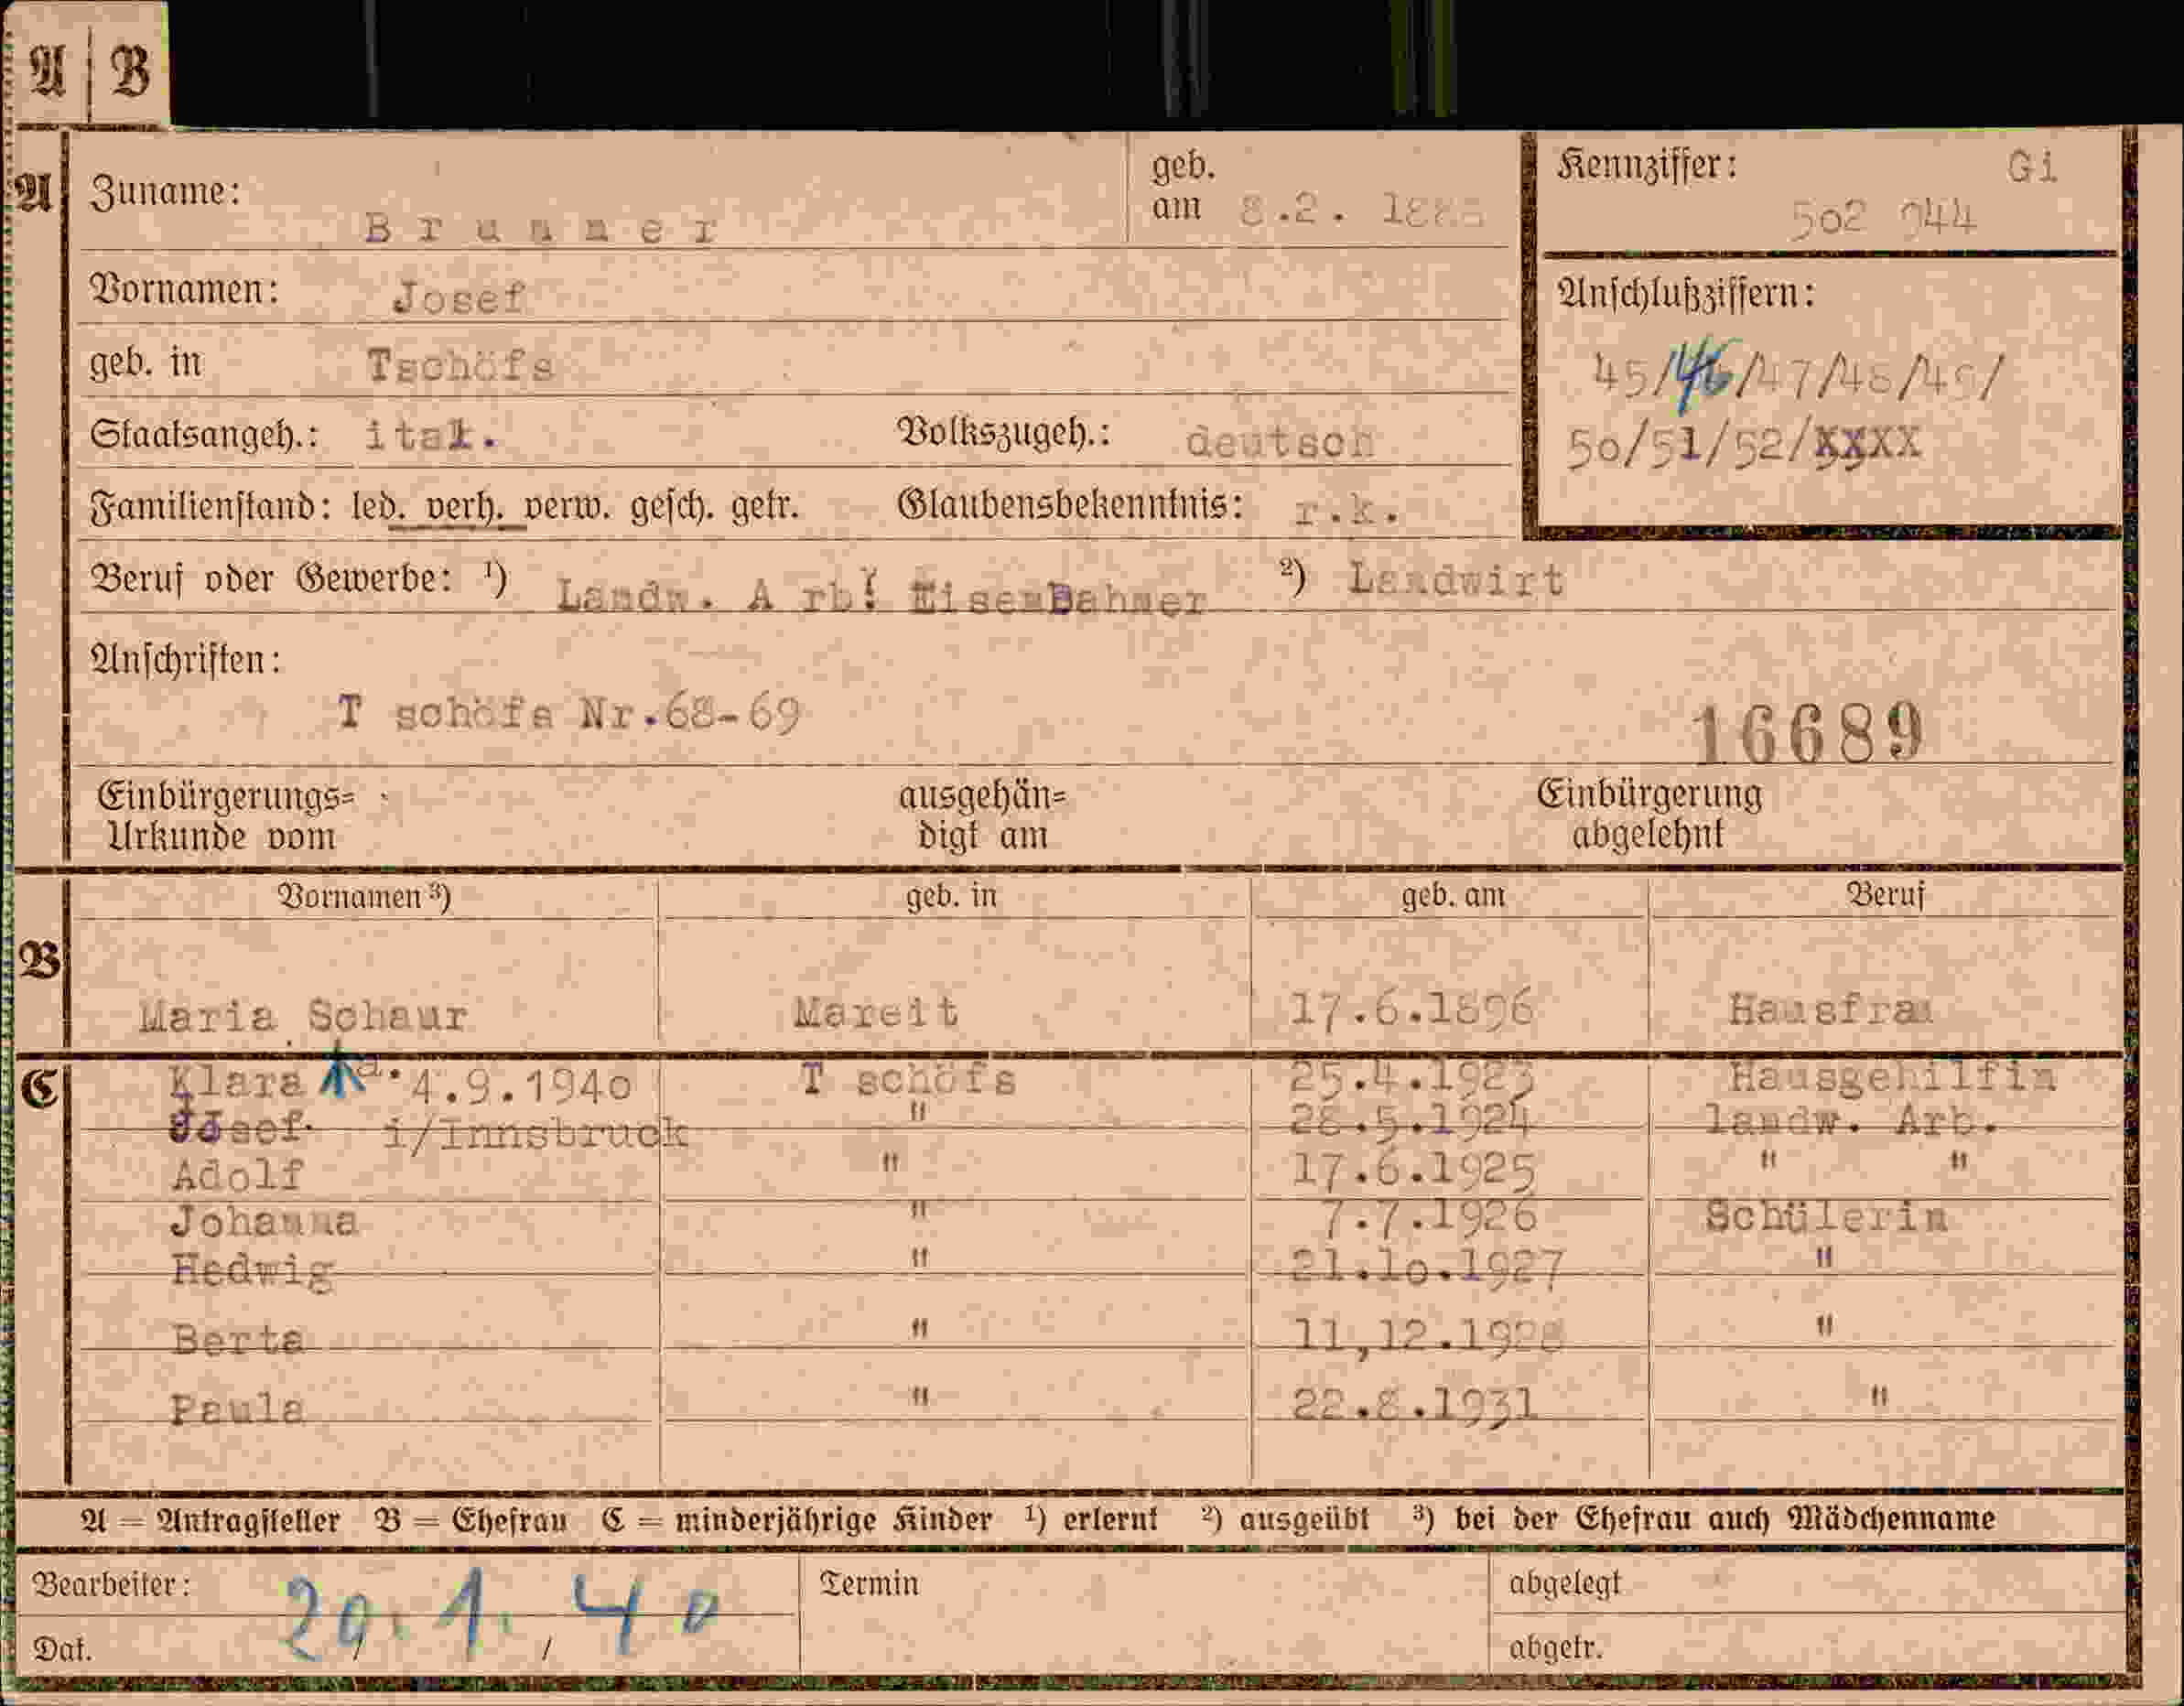 A B
A Zuname: Brunner geb. am 8.2. 188
Kennziffer: Gi
502 944
Vornamen: Josef
Anschlußziffern:
geb. in Tschöfs
45/46/47/48/49/
Staatsangeh.: ital. Volkszugeh.: deutsch
50/51/52/XXXX
Familienstand: led. verh. verw. gesch. getr. Glaubensbekenntnis: r.k.
Beruf oder Gewerbe: ¹) Landw. A rb. Eisenbahner ²) Landwirt
Anschriften:
T schöfs Nr.68-69
16689
Einbürgerungs=
Urkunde vom
ausgehän=
digt am
Einbürgerung
abgelehnt
Vornamen ³) geb. in geb. am Beruf
B
Maria Schaur Mareit 17.6.1896 Hausfrau
C Klara 4.9.1940 T schöfs 25.4.1923 Hausgehilfin
Josef i/Innsbruck " 28.5.1924 landw. Arb.
Adolf " 17.6.1925 " "
Johanna " 7.7.1926 Schülerin
Hedwig " 21.10.1927 "
Berta " 11,12.1928 "
Paula " 22.8.1931 "
A = Antragsteller B = Ehefrau C = minderjährige Kinder ¹) erlernt ²) ausgeübt ³) bei der Ehefrau auch Mädchenname
Bearbeiter: Termin abgelegt
29. 1. 40
Dat. / / abgetr.